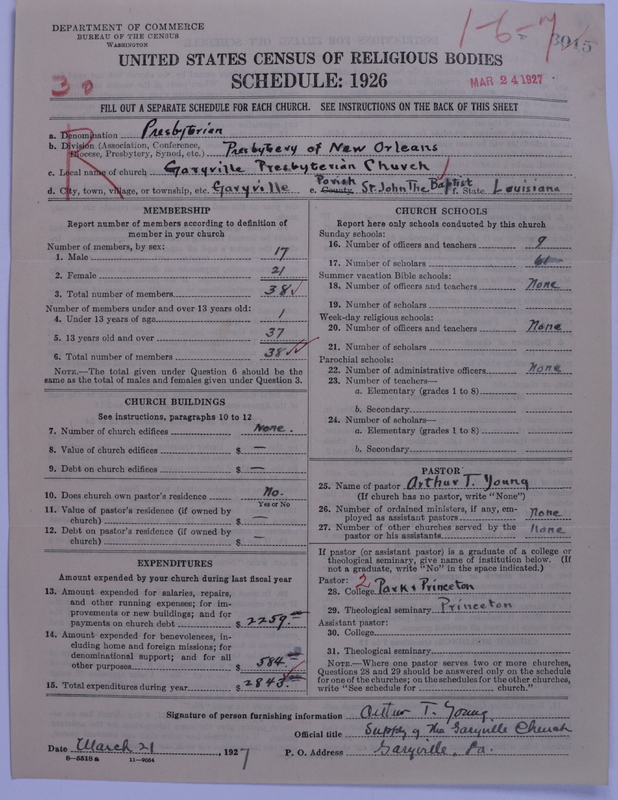 DEPARTMENT OF COMMERCE
BUREAU OF THE CENSUS
WASHINGTON
1-6-7
3015
UNITED STATES CENSUS OF RELIGIOUS BODIES
SCHEDULE: 1926
30
MAR 24 1927
FILL OUT A SEPARATE SCHEDULE FOR EACH CHURCH. SEE INSTRUCTIONS ON THE BACK OF THIS SHEET
R
a. Denomination Presbyterian
b. Division (Association, Conference, Diocese, Presbytery, Synod, etc.) Presbytery of New Orleans
c. Local name of church Garyville Presbyterian Church
d. City, town, village, or township, etc. Garyville e. County Parish St. John The Baptist f. State Louisiana
MEMBERSHIP
Report number of members according to definition of
member in your church
Number of members, by sex:
1. Male 17
2. Female 21
3. Total number of members 38
Number of members under and over 13 years old:
4. Under 13 years of age 1
5. 13 years old and over 37
6. Total number of members 38
NOTE.—The total given under Question 6 should be
same as the total of males and females given under Question 3.
CHURCH BUILDINGS
See instructions, paragraphs 10 to 12
7. Number of church edifices None.
8. Value of church edifices $ —
9. Debt on church edifices $ —
10. Does church own pastor's residence No.
Yes or No
11. Value of pastor's residence (if owned by
church) $ —
12. Debt on pastor's residence (if owned by
church) $ —
EXPENDITURES
Amount expended by your church during last fiscal year
13. Amount expended for salaries, repairs,
and other running expenses; for im-
provements or new buildings; and for
payments on church debt $ 2259.
14. Amount expended for benevolences, in-
cluding home and foreign missions; for
denominational support; and for all
other purposes $ 584
15. Total expenditures during year $ 2843.
CHURCH SCHOOLS
Report here only schools conducted by this church
Sunday schools:
16. Number of officers and teachers 9
17. Number of scholars
Summer vacation Bible schools:
18. Number of officers and teachers None
19. Number of scholars
Week-day religious schools:
20. Number of officers and teachers None
21. Number of scholars
Parochial schools:
22. Number of administrative officers None
23. Number of teachers—
a. Elementary (grades 1 to 8)
b. Secondary
24. Number of scholars—
a. Elementary (grades 1 to 8)
b. Secondary
PASTOR
25. Name of pastor Arthur T. Young
(If church has no pastor, write "None")
26. Number of ordained ministers, if any, em-
ployed as assistant pastors None
27. Number of other churches served by the
pastor or his assistants None
If pastor (or assistant pastor) is a graduate of a college or
theological seminary, give name of institution below. (If
not a graduate, write "No" in the space indicated.)
Pastor: 2
28. College Park & Princeton
29. Theological seminary Princeton
Assistant pastor:
30. College
31. Theological seminary
NOTE.—Where one pastor serves two or more churches,
Questions 28 and 29 should be answered only on the schedule
for one of the churches; on the schedules for the other churches,
write "See schedule for church."
Signature of person furnishing information Arthur T. Young
Official title Supply of the Garyville Church
Date March 21, 1927 P. O. Address Garyville, La.
8—5518 a 11—9064